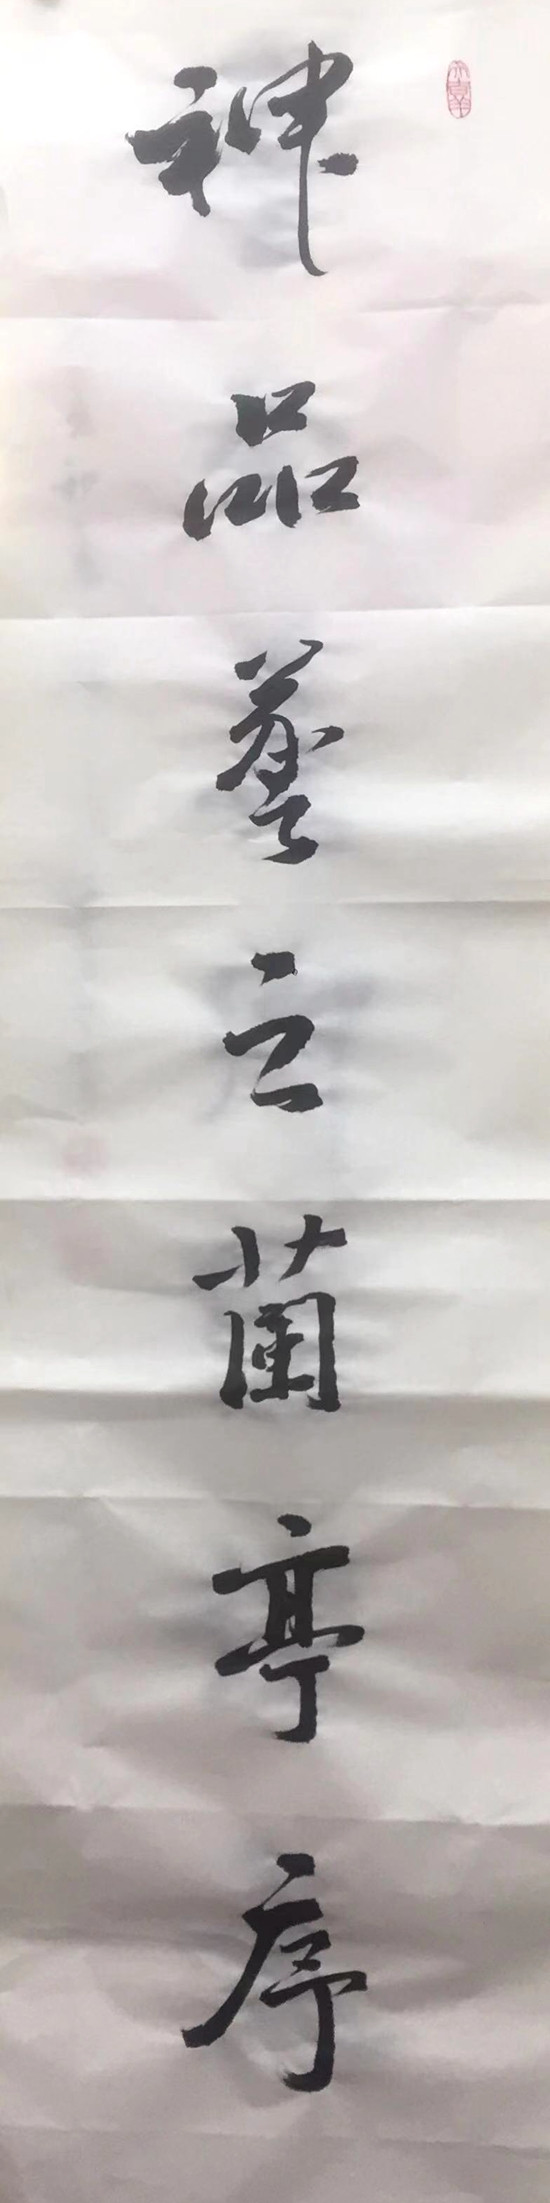 神品之蘭亭序